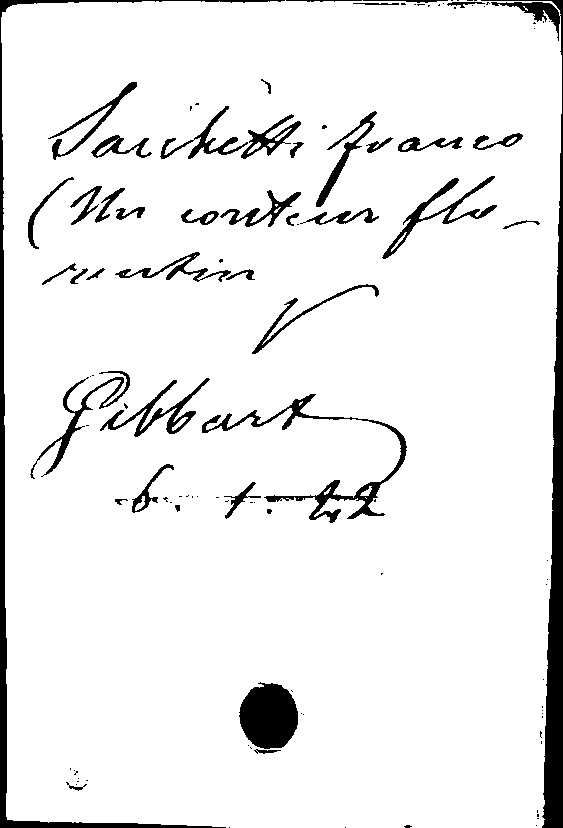 Sacchetti Franco
(Un conteur flo-
rentin
V
Gibbart
6. 1. 22